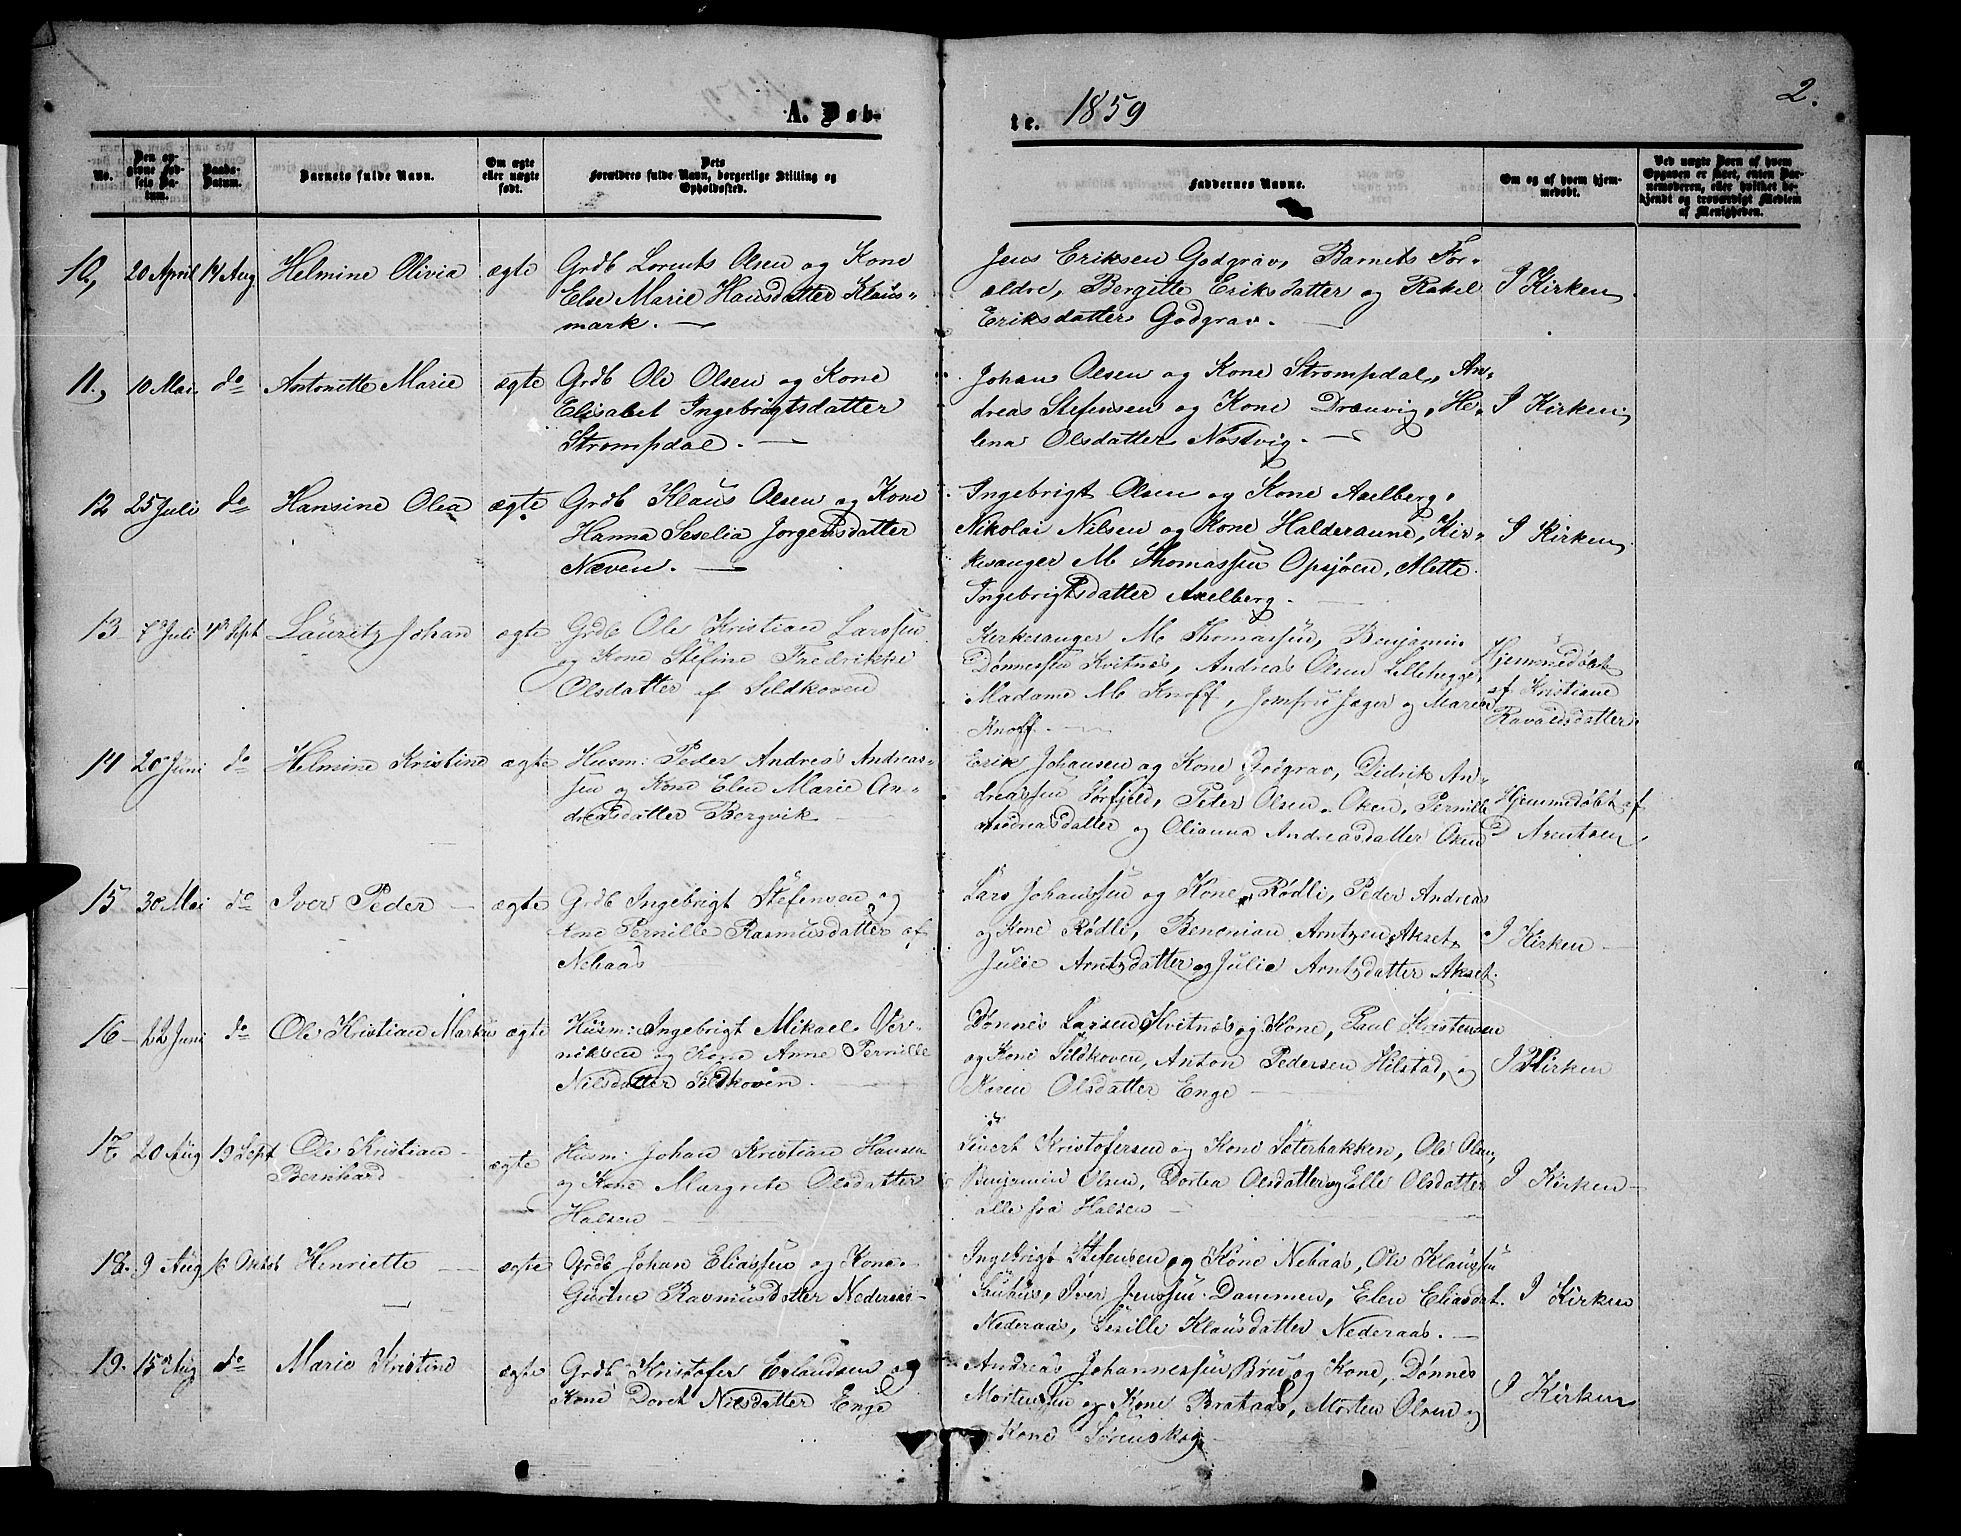 A. Døb-
te. 1859
2.
No.
Den op-
givne Fød-
sels Da-
tum.
Daabs-
Datum.
Barnets fulde Navn.
Om ægte
eller uægte
født.
Dets
Forældres fulde Navn, borgerlige Stilling og
Opholdssted.
Faddernes Navne.
Om og af hvem hjem-
medøbt.
Ved uægte Børn af hvem
Opgaven er skeet, enten Bar-
nemoderen, eller hvilket be-
kjendt og troværdigt Medlem
af Menigheden.
10, 20 April 14 Aug Helmine Olivia ægte Grdb Lorents Olsen og Kone
Else Marie Hansdatter Klaus-
mark. —
Jens Eriksen Godgrav, Barnets For-
ældre, Bergitte Eriksdatter og Rakel
Eriksdatter Godgrav. —
I Kirken
11., 10 Mai. do Antonette Marie ægte Grdb Ole Olsen og Kone
Elisabet Ingebrigtsdatter
Strompdal. —
Johan Olsen og Kone Strompdal, An-
dreas Stefensen og Kone Drauvig, He-
lena Olsdatter Nostvig. —
I Kirken
12 25 Juli do Hansine Olea ægte Grdb Klaus Olsen og Kone
Hanna Seselia Jorgensdatter
Næven. —
Ingebrigt Olsen og Kone Axelberg,
Nikolai Nilsen og Kone Halderaune, Kir-
kesanger M Thomassen Opsjøen, Mette
Ingebrigtsdatter Axelberg. —
I Kirken
13 7 Juli 4 Sept Lauritz Johan ægte Grdb Ole Kristian Larssen
og Kone Stefine Fredrikke
Olsdatter af Sildhoven
Kirkesanger M Thomassen, Benjamin
Dønnessen Kvitnes, Andreas Olsen Lillehegge,
Madame M Knoff, Jomfru Jager og Maren
Knoff —
Hjemmedøbt
af Kristiane
14 20 Juni do Helmine Kristine ægte Husm: Peder Andreas Andreas-
sen og Kone Elen Marie An-
dreasdatter Bergvik —
Erik Johansen og Kone Godgrav, Didrik An-
dreassen Sorfjeld, Peter Olsen Oxen, Pernille
Andreasdatter og Olianna Andreasdatter Oxen
Hjemmedøbt af
D Arentzen
15 30 Mai do Iver Peder — ægte Grdb Ingebrigt Stefensen og
Kone Pernille Rasmusdatter af
Nebaas
Lars Johanssen og Kone Rødli, Peder Andreas
og Kone Rødli, Benonian Arntzen Akset,
Julie Arntzdatter og Julie Arntzdatter Akset.
I Kirken —
16 22 Juni do Ole Kristian Markus ægte Husm: Ingebrigt Mikael Ver-
niksen og Kone Anne Pernille
Nilsdatter Sildhoven.
Dønnes Larsen Kvitnes og Kone, Paul Kristensen
og Kone Sildhoven, Anton Pedersen Hilstad, og
Karen Olsdatter Enge —
I Kirken
17 20 Aug 19 Sept Ole Kristian
Bernhard
ægte Husm: Johan Kristian Hansen
og Kone Margrete Olsdatter
Halsen —
Sivert Kristofersen og Kone Seterbakken, Ole Olsen,
Benjamin Olsen, Dortea Olsdatter og Elle Olsdatter
alle fra Halsen —
I Kirken —
18. 9 Aug 16 Oktob Henriette — ægte Grdb Johan Eliassen og Kone
Gurine Rasmusdatter Nederaas —
Ingebrigt Stefensen og Kone Nebaas, Ole Klaussen
Sauhus, Iver Jenssen Dammen, Elen Eliasdat.
Nederaas, Sesille Klausdatter Nederaas. —
I Kirken
19. 15 Aug do Marie Kristine ægte Grdb Kristofer Erlandsen og
Kone Doret Nilsdatter Enge
Andreas Johannessen Breu og Kone, Dønnes
Mortenssen og Kone Brataas, Morten Olsen og
Kone Sørenskog —
I Kirken